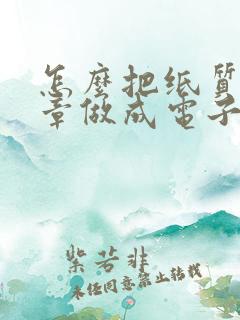 怎麼把纸質
章做成電子
紫若非
未经同意禁止转载